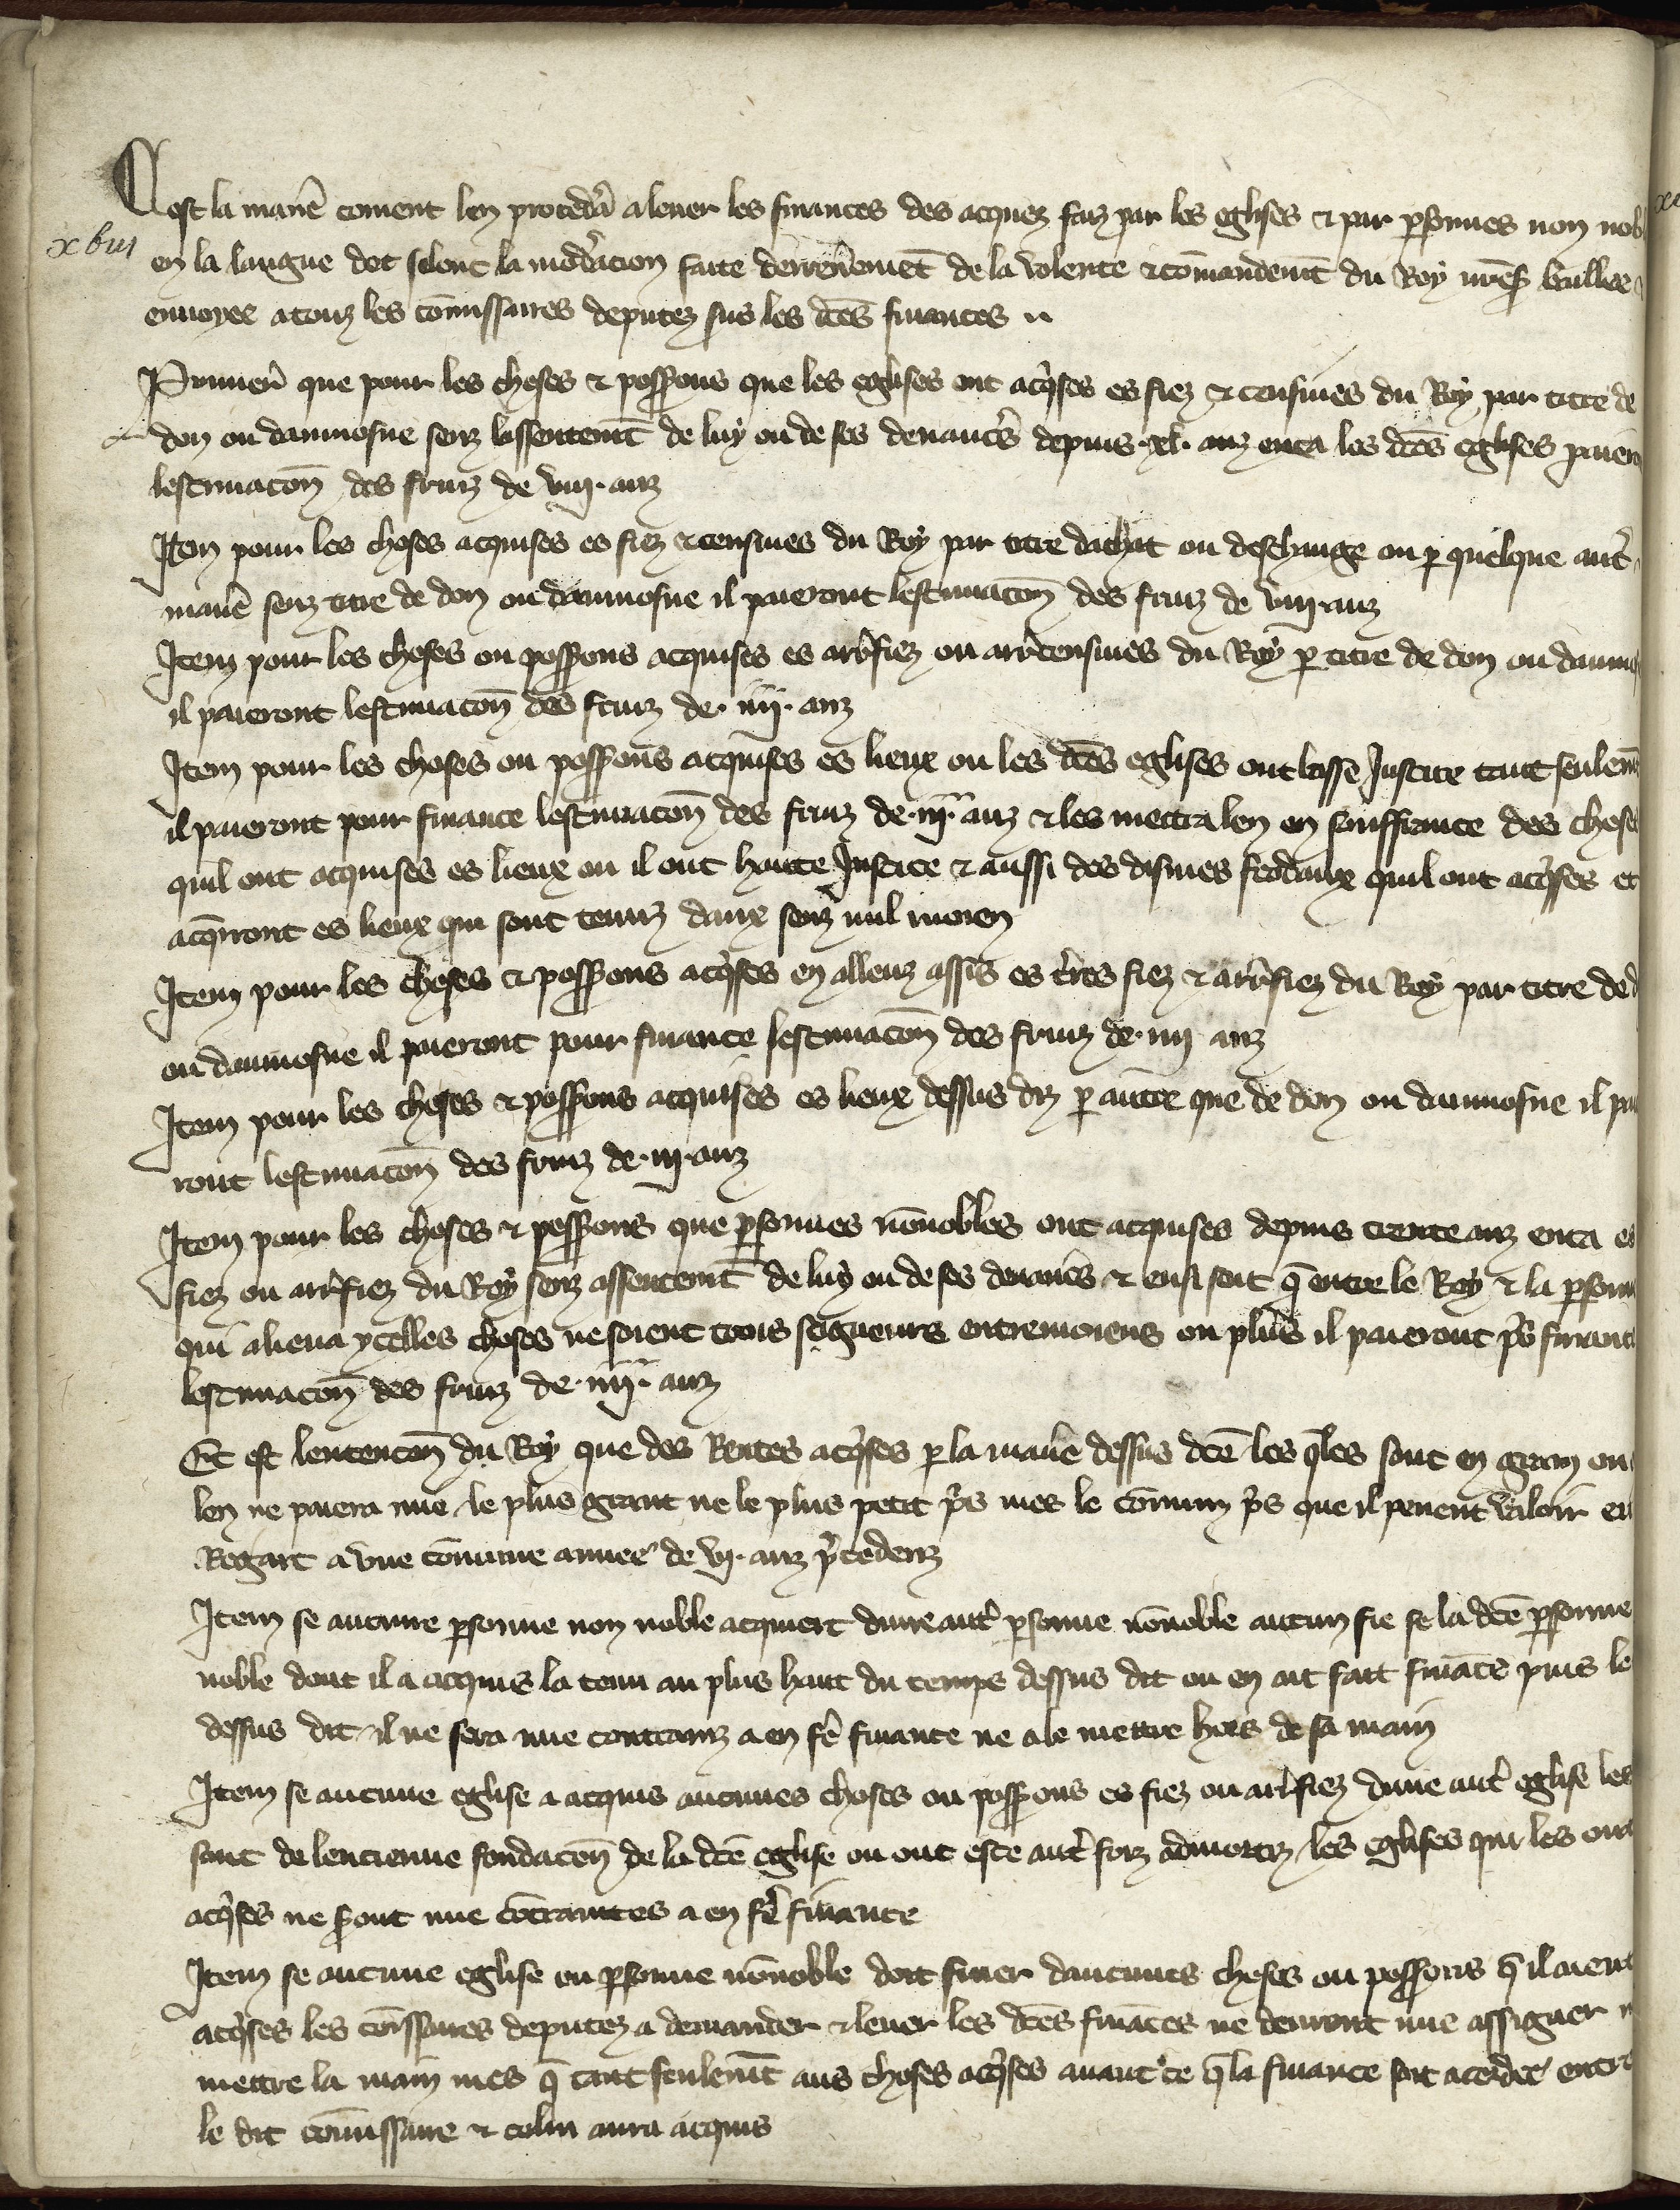 Cest la maniē coment len procedā a lever les finances des acquez faiz par les eglises & par psonnes non nob
xviii
en la langue doc selont la modacion faite derrenemēt de la volente & cōmandemēt du Roy nrēs baillee
envoyee a touz les cōmissaires deputez sus les dcēs finances
Primer̄ que pour les choses & possons que les eglises ont acqses es fiez & censives du Roy par titre de
don ou daumosne senz lassentemt̄ de luy ou de ses devancs̄ depuis .xl. anz enca les dcēs eglises paier
lestimacon̄ des fruiz de viii. anz
Item pour les choses acquises es fiez & censives du Roy par titre dachat ou deschange ou p quelque aut̄
maniē senz titre de don ou daumosne il paieront lestimacon̄ des fruiz de viii. anz
Item pour les choses ou possons acquises es arr̄fiez ou arr̄censives du Roy p titre de don ou daumo
il paieront lestimacon̄ des fruiz de .iiii. anz
Item pour les choses ou possons acquises es lieux ou les dcēs eglises ont basse Justice tant seulem̄
il paieront pour finance lestimacon̄ des fruiz de .iii. anz & les mettra len en souffrance des choses
quil ont acquises es lieux ou il ont haute Justice & aussi des dismes feodaux quil ont acqses et
acqrront es lieux qui sont tenuz daux senz nul moien
Item pour les choses & possons acqses en alleuz assis es tr̄res fiez & arr̄fiez du Roy par titre de d
ou daumosne il paieront pour finance lestimacon̄ des fruiz de .iiii. anz
Item pour les choses & possons acquises es lieux dessus diz p autre que de don ou daumosne il pai
ront lestimacon̄ des fruiz de .iii. anz
Item pour les choses & possons que psonnes nōnobles ont acquises depuis trente anz enca es
fiez ou arr̄fiez du Roy senz assentemt̄ de luy ou de ses devancs̄ & ensi soit q̄ entre le Roy & la psonn
qui aliena ycelles choses ne soient trois seigneurs entremoiens ou plus̄ il paieront pr̄ finance
lestimacon̄ des fruiz de .iiii. anz
Et est lentencon̄ du Roy que des Rentes acqses p la maniē dessus dcē les qles sont en grain ou
len ne paiera mie le plus grant ne le plus petit ps mes le cōmun ps que il pevent valoir eu
Regart a une cōmune annee de vi. anz pcedenz
Item se aucune psonne non noble acquiert dune aut̄ psonne nōnoble aucun fie se la dcē psonne
noble dont il a acquis la tenu au plus haut du temps dessus dit ou en ait fait finācē puis le
dessus dit il ne sera mie contrainz a en fē finance ne a le mettre hors de sa main
Item se aucune eglise a acquis aucunes choses ou possons es fiez ou arr̄fiez dune aut̄ eglise les
sont de lencienne fondacon̄ de la dcē eglise ou ont este aut̄ foiz admortiz les eglises qui les ont
acqses ne sront mie cōtraintes a en fē finance
Item se aucune eglise ou psonne nōnoble doit finer daucunes choses ou possons q̄ il aient
acqses les cōissaires deputez a demander & lever les dcēs finācēs ne devront mie assigner n
mettre la main mes q̄ tant seulemt̄ aus choses acqses avant ce q̄ la finance soit acordee entre
le dit cōmissaire & celui aura acquis